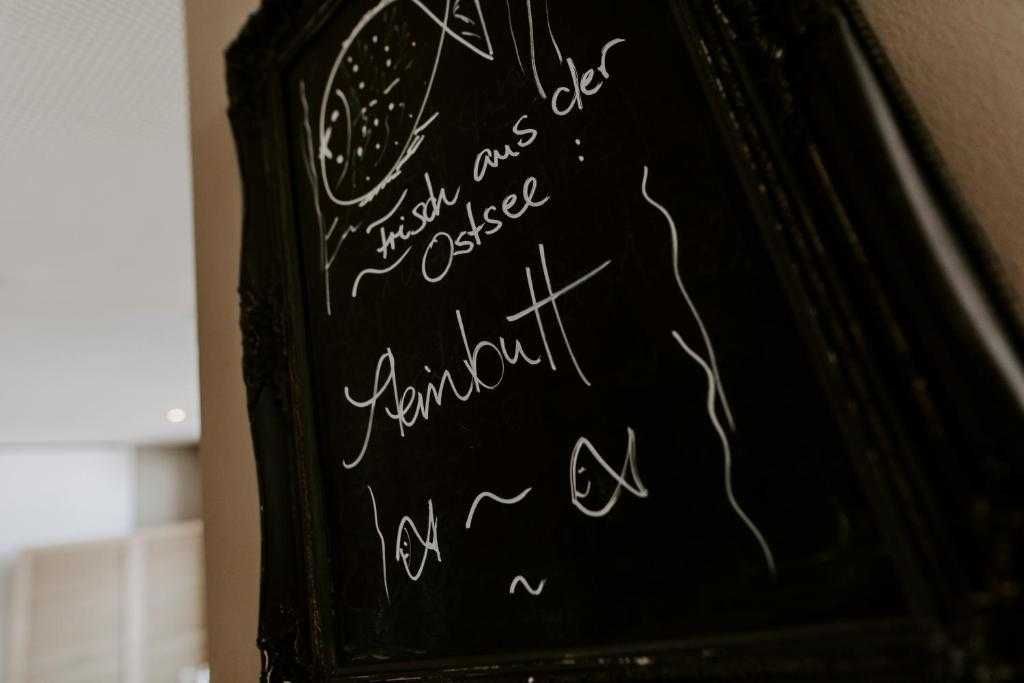 Frisch aus der
Ostsee :
Steinbutt